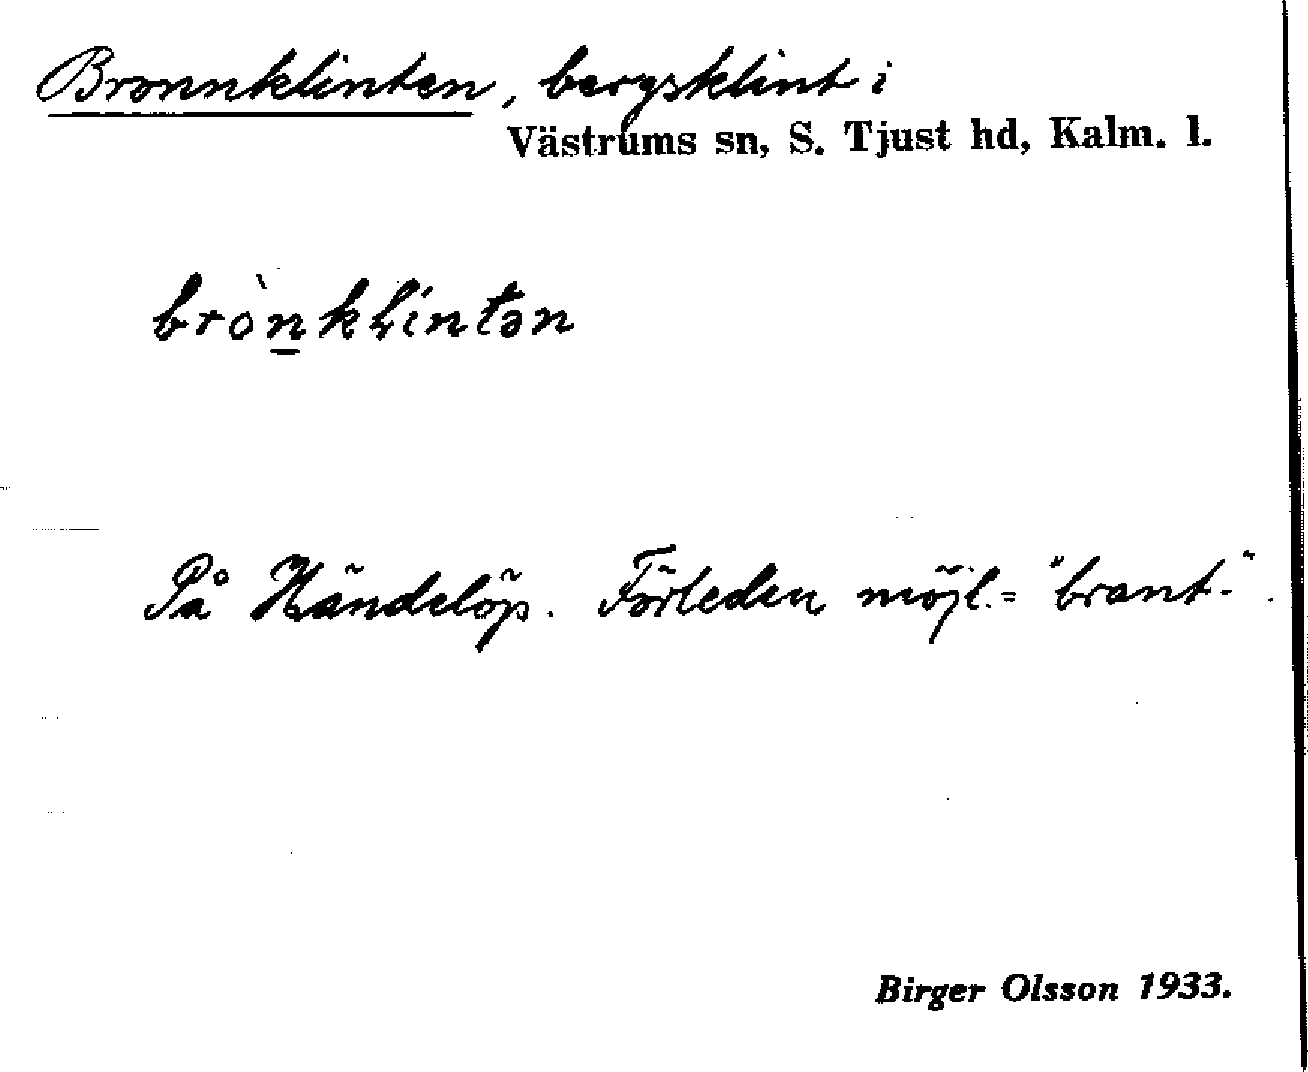 Bronnklinten, bergsklint i
Västrums sn, S. Tjust hd, Kalm. l.
brònklintən
På Händelöp. Förleden möjl. = "brant-".
Birger Olsson 1933.